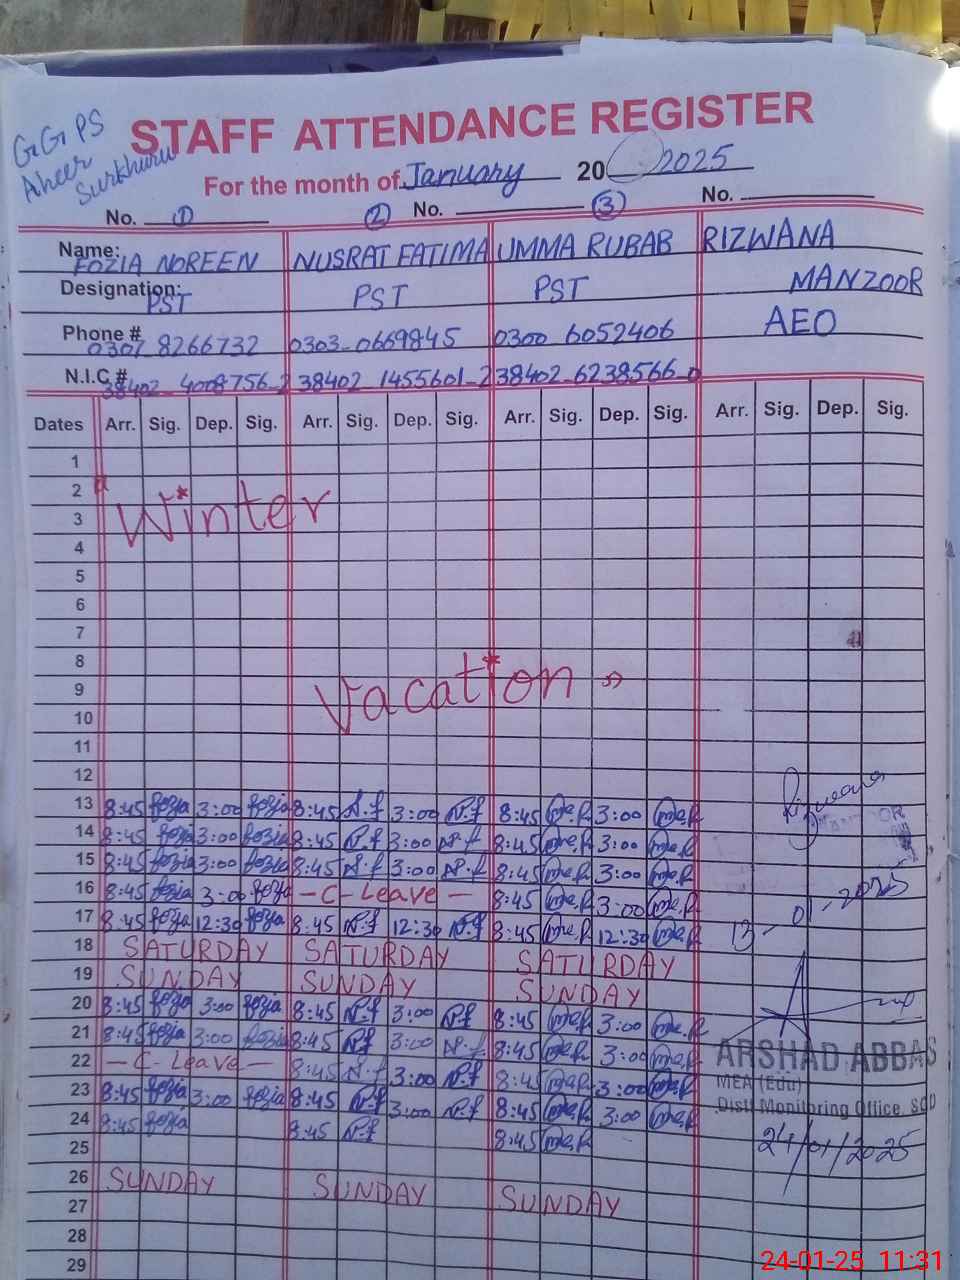 GGPS
Aheer
Surkhuru
STAFF ATTENDANCE REGISTER
For the month of January 20 2025
No. 1 2 No. 3 No.
Name: FOZIA NOREEN NUSRAT FATIMA UMMA RUBAB RIZWANA
MANZOOR
Designation: PST PST PST AEO
Phone # 0307 8266732 0303-0669845 0300 6052406
N.I.C # 38402_4008756_2 38402_1455601_2 38402_6238566_0
Dates Arr. Sig. Dep. Sig. Arr. Sig. Dep. Sig. Arr. Sig. Dep. Sig. Arr. Sig. Dep. Sig.
1
2
3 Winter
4
5
6
7
8
9 Vacation
10
11
12
13 8:45 fozia 3:00 fozia 8:45 N.f 3:00 N.f 8:45 3:00
14 8:45 fozia 3:00 fozia 8:45 N.f 3:00 N.f 8:45 3:00
15 8:45 fozia 3:00 fozia 8:45 N.f 3:00 N.f 8:45 3:00
16 8:45 fozia 3:00 fozia -C-Leave- 8:45 3:00
17 8:45 fozia 12:30 fozia 8:45 N.f 12:30 N.f 8:45 12:30
18 SATURDAY SATURDAY SATURDAY
19 SUNDAY SUNDAY SUNDAY
20 8:45 fozia 3:00 fozia 8:45 N.f 3:00 N.f 8:45 3:00
21 8:45 fozia 3:00 fozia 8:45 N.f 3:00 N.f 8:45 3:00
22 -C-Leave- 8:45 N.f 3:00 N.f 8:45 3:00
23 8:45 fozia 3:00 fozia 8:45 N.f 3:00 N.f 8:45 3:00
24 8:45 fozia 8:45 N.f 8:45
25
26 SUNDAY SUNDAY SUNDAY
27
28
29
Rizwana
MANZOOR
13-01-2025
ARSHAD ABBAS
MEA (Edu)
Distt Monitoring Office, SGD
24/01/2025
24-01-25 11:31